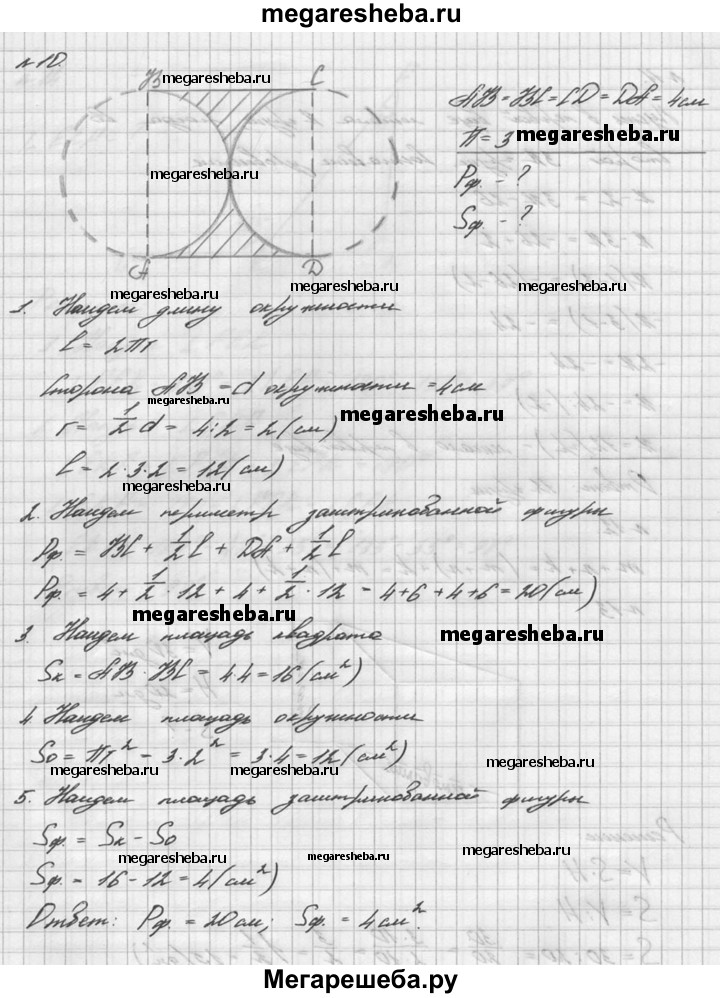 megaresheba.ru
№10.
B C
megaresheba.ru
AB = BC = CD = DA = 4 см
П = 3
megaresheba.ru
megaresheba.ru
Pф. - ?
Sф. - ?
A D
megaresheba.ru megaresheba.ru
megaresheba.ru
1. Найдем длину окружности
C = 2Пr
Сторона AB = d окружности = 4 см
megaresheba.ru
megaresheba.ru
r = 1/2 d = 4:2 = 2 (см)
C = 2·3·2 = 12 (см)
megaresheba.ru
2. Найдем периметр заштрихованной фигуры
Pф. = BC + 1/2 C + DA + 1/2 C
Pф. = 4 + 1/2 · 12 + 4 + 1/2 · 12 = 4+6+4+6 = 20 (см)
megaresheba.ru
3. Найдем площадь квадрата
megaresheba.ru
Sк = AB · BC = 4·4 = 16 (см²)
4 Найдем площадь окружности
Sо = Пr² = 3·2² = 3·4 = 12 (см²)
megaresheba.ru megaresheba.ru megaresheba.ru
5. Найдем площадь заштрихованной фигуры
Sф. = Sк - Sо
megaresheba.ru megaresheba.ru megaresheba.ru
Sф. = 16 - 12 = 4 (см²)
Ответ: Pф. = 20 см; Sф. = 4 см².
megaresheba.ru megaresheba.ru
Мегарешеба.ру